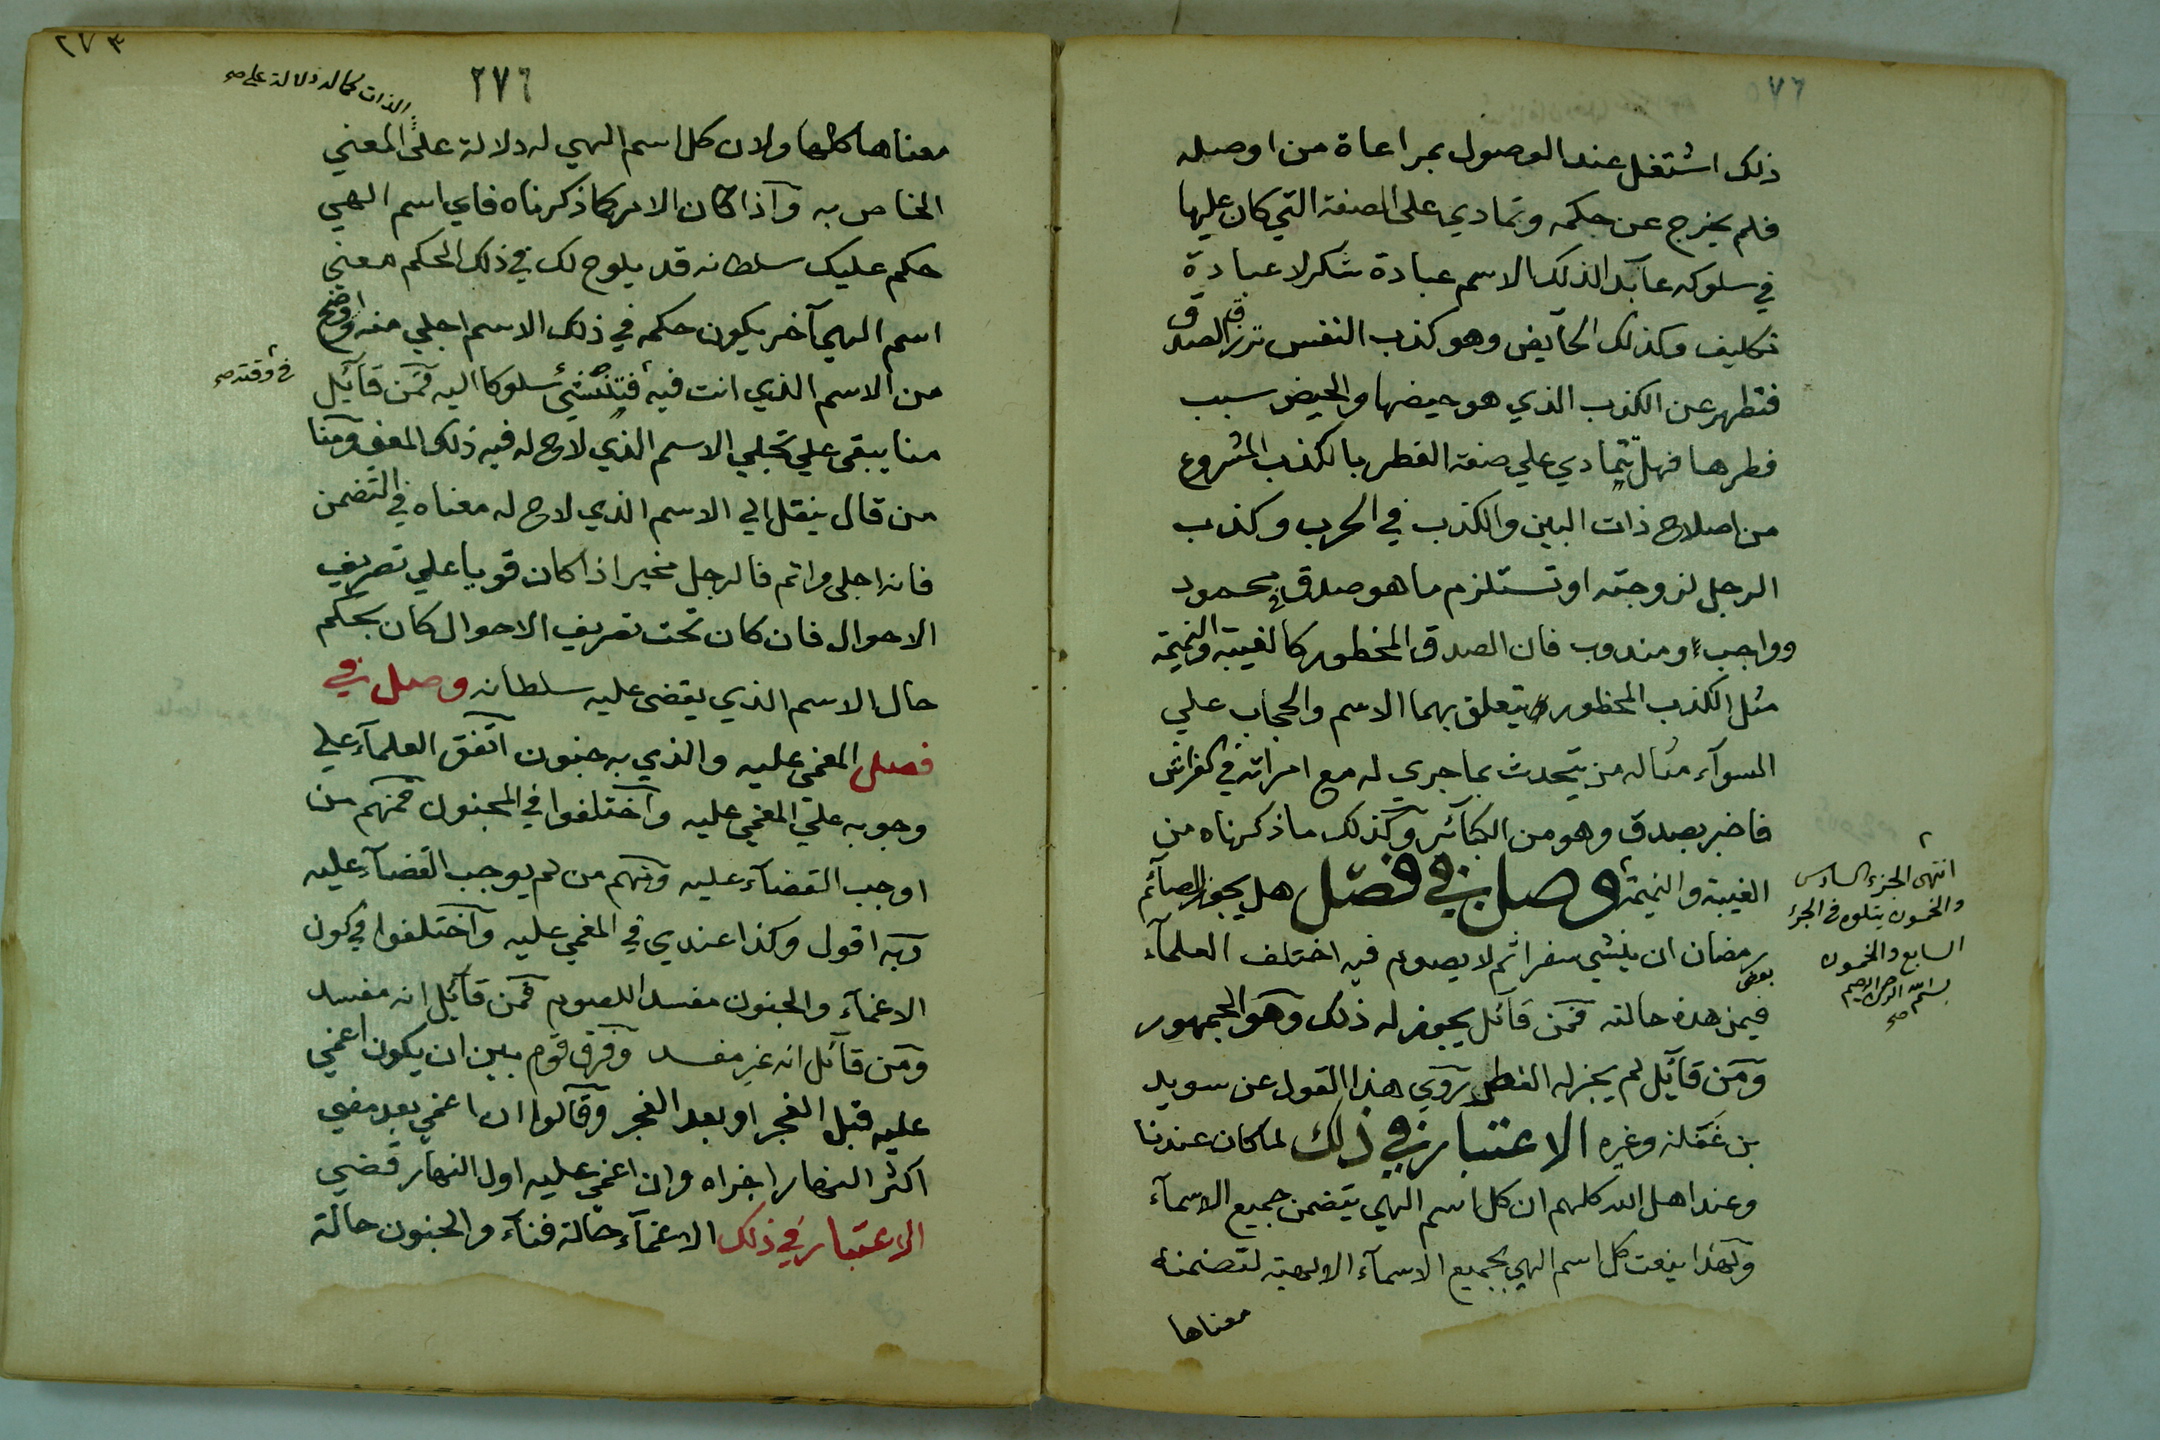 ٥٧٦
ذلك اشتغل عند الوصول بمراعاة من اوصله
فلم يخرج عن حكمه وتمادي على الصفة التي كان عليها
في سلوكه عابدا لذلك الاسم عبادة شكر لا عبادة
تكليف وكذلك الحآيض وهو كذب النفس ترزق الصدق
فتطهر عن الكذب الذي هو حيضها والحيض سبب
فطرها فهل تتمادي علي صفة الفطر بالكذب المشروع
من اصلاح ذات البين والكذب في الحرب وكذب
الرجل لزوجته او تستلزم ما هو صدق محمود
وواجب او مندوب فان الصدق المحظور كالغيبة والنميمة
مثل الكذب المحظور يتعلق بهما الاسم والحجاب علي
السوآء مثاله من يتحدث بما جري له مع امراته في الفراش
فاخبر بصدق وهو من الكبآئر وكذلك ما ذكرناه من
الغيبة والنميمة وصل في فصل هل يجوز للصآئم
رمضان ان ينشي سفرا ثم لا يصوم فيه اختلف العلمآء
بعض
فيمن هذه حالته فمن قآئل يجوز له ذلك وهو الجمهور
ومن قآئل لم يجز له الفطر روي هذا القول عن سويد
بن غفلة وغيره الاعتبار في ذلك لما كان عندنا
وعند اهل الله كلهم ان كل اسم الهي يتضمن جميع الاسمآء
ولهذا ينعت كل اسم الهي بجميع الاسمآء الالهية لتضمنه
معناها
انتهى الجزء السادس
والخمسون يتلوه في الجزء
السابع والخمسون
بسم الله الرحمن الرحيم
صح
٢٧٣
٢٧٦
الذات كما له دلالة على صح
معناها كلها ولان كل اسم الهي له دلالة على المعني
الخاص به واذا كان الامر كما ذكرناه فاي اسم الهي
حكم عليك سلطانه قد يلوح لك في ذلك الحكم معني
اسم الهي آخر يكون حكمه في ذلك الاسم اجلي منه واوضح
من الاسم الذي انت فيه فتنشئ سلوكا اليه فمن قآئل
في وقته صح
منا يبقى علي تجلي الاسم الذي لاح له فيه ذلك المعني ومنا
من قال ينتقل الي الاسم الذي لاح له معناه في التضمن
فانه اجلى واتم فالرجل مخير اذا كان قويا علي تصريف
الاحوال فان كان تحت تصريف الاحوال كان بحكم
حال الاسم الذي يقضى عليه سلطانه وصل في
فصل المغمى عليه والذي به جنون اتفق العلمآء علي
وجوبه علي المغمي عليه واختلفوا في المجنون فمنهم من
اوجب القضآء عليه ومنهم من لم يوجب القضآء عليه
وبه اقول وكذا عندي في المغمي عليه واختلفوا في كون
الاغمآء والجنون مفسدا للصوم فمن قآئل انه مفسد
ومن قآئل انه غير مفسد وفرق قوم بين ان يكون اغمي
عليه قبل الفجر او بعد الفجر وقالوا ان اغمي بعد مضي
اكثر النهار اجزاه وان اغمي عليه اول النهار قضي
الاعتبار في ذلك الاغمآء حالة فنآء والجنون حالة